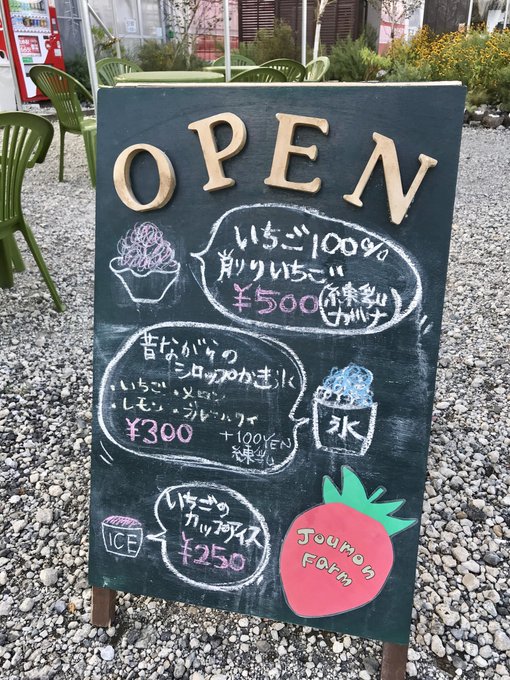 OPEN
いちご100%
削りいちご
¥500(練乳
ガケ
昔ながらの
シロップかき氷
・いちご・メロン
・レモン・ブルーハワイ
¥300
+100YEN
練乳
氷
いちごの
カップアイス
¥250
ICE
Joumon
Farm